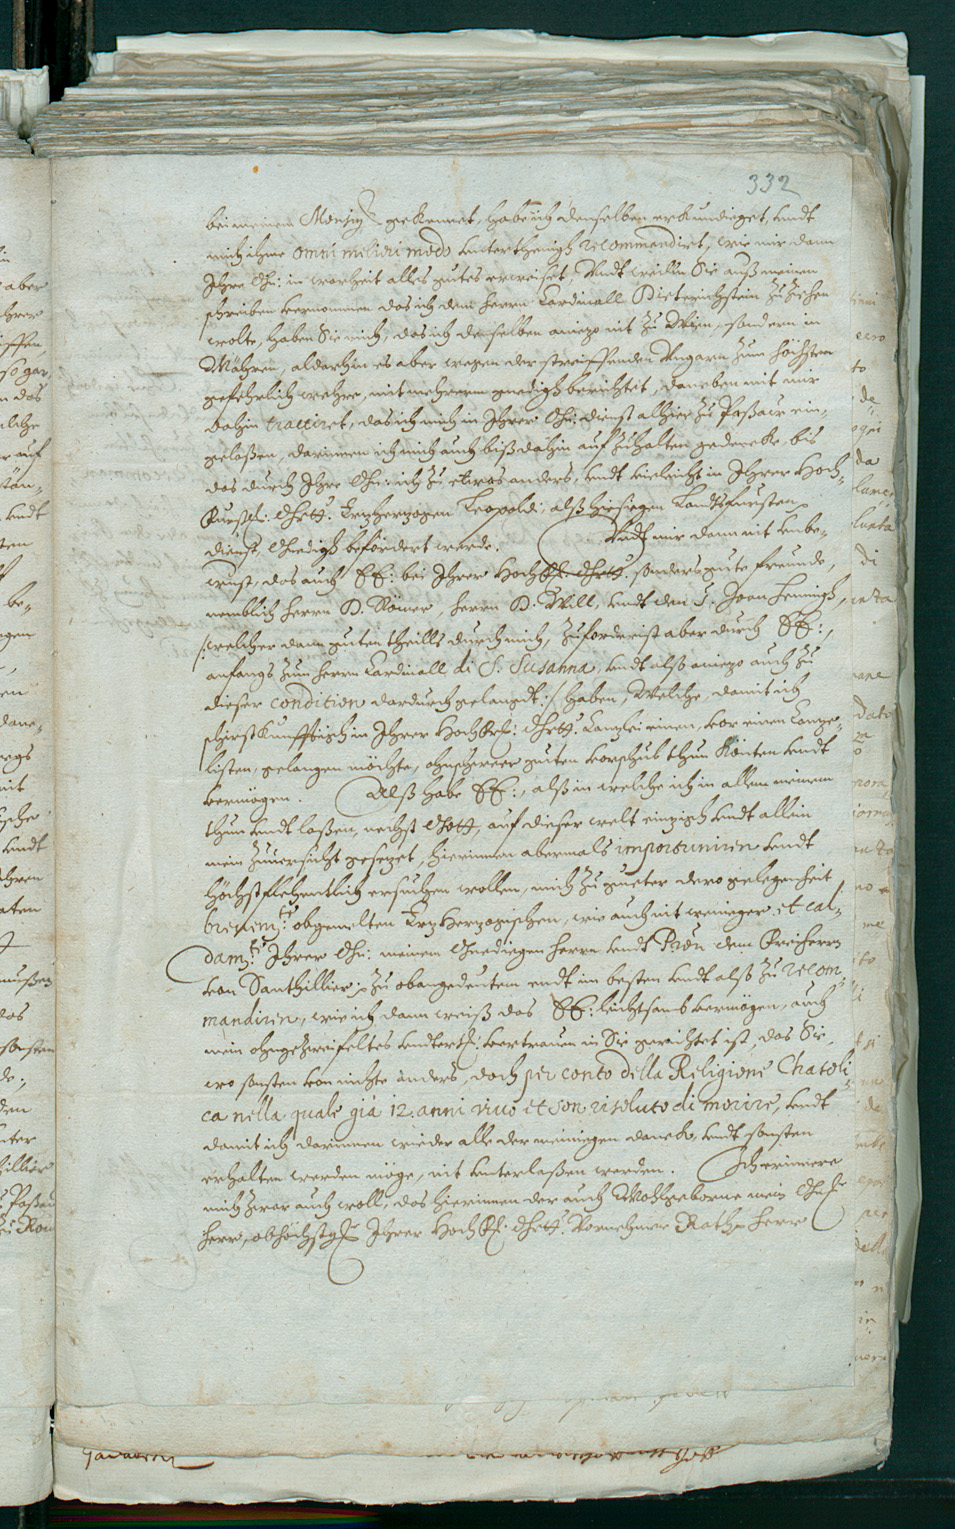 332
bei meinem Monsig: gekennet, habe ich denselben erkundiget, undt
mich ihme omni meliori modo unterthenigh recommendiret, wie mir dann
Ihre Gn: in warheit alles gutes erweiset, Undt weillen Sie auß meinem
schreiben vernommen das ich dem herrn Cardinall Dieterichstein zu ziehen
wolte, haben Sie mich, das ich denselben aniezo nit zu Wien, sondern in
Mähren, aldarhin es aber wegen der streiffenden Ungarn zum höchsten
gefehrlich wehre, mit mehrerm gnedigh berichtet, daneben mit mir
dahin tractiret, das ich mich in Ihrer Gn: dienst alhier zu Paßaw ein-
gelaßen, darinnen ich mich auch biß dahin auffzuhalten gedencke, bis
das durch Ihre Gn: ich zu etwas anders, undt vieleicht in Ihrer Hoch-
Fürstl: Dhrtt: Erzherzogen Leopoldi, alß hiesigen Landtsfursten
dienst, Gnedigh befördert werde. Undt mir dann nit unbe-
wust, das auch EE: bei Ihrer Hochfl: Dhrtt: sonders gute freunde,
nemblich herrn D. Römer, herrn D. Will, undt den S. Joan Hennigh,
/: welcher dann guten theills durch mich, zuforderist aber durch EE:,
anfangs zum herrn Cardinall di S. Susanna, undt alß aniezo auch zu
dieser condition dardurch gelangdt :/ haben, Welche, damit ich
schirst kunfftigh in Ihrer Hochfrl: Dhrtt: Canzlei einen, vor einen Canze-
listen, gelangen möchte, ohnschwer guten vorschub thun könten undt
vermögen. Alß habe EE:, alß in welche ich in allem meinem
thun undt laßen, nechst Gott, auf dieser welt einzich undt allein
mein zuversicht gesezet, hierinnen abermals importuniren undt
höchst flehentlich ersuchen wollen, mich zu gueter dero gelegenheit
obgemelten Erz Herzogischen, wie auch nit weniger et cal-
dam: Ihrer Gn: meinem Gnedigen herrn undt Pron dem Freiherrn
von Santhillier: zu obangedeutem endt im besten undt alß zu recom-
mandiren, wie ich dann weiß das EE: leichtsamb vermögen, auch
mein ohngezweifeltes vertrauen in Sie gerichtet ist, das Sie,
wo sonsten von nichts anders, doch per conto della Religione Chatoli-
ca nella quale già 12. anni vivo et son risoluto di morire, undt
damit ich darinnen wieder alle der meinigen danck, undt sonsten
erhalten werden möge, nit unterlaßen werden. Ich erinnere
mich zwar auch woll, das hierinnen der auch Wohlgeborne mein Gn:
herr, obhöchstg: Ihrer Hochfl: Dhrtt: Vornehmer Rath herr